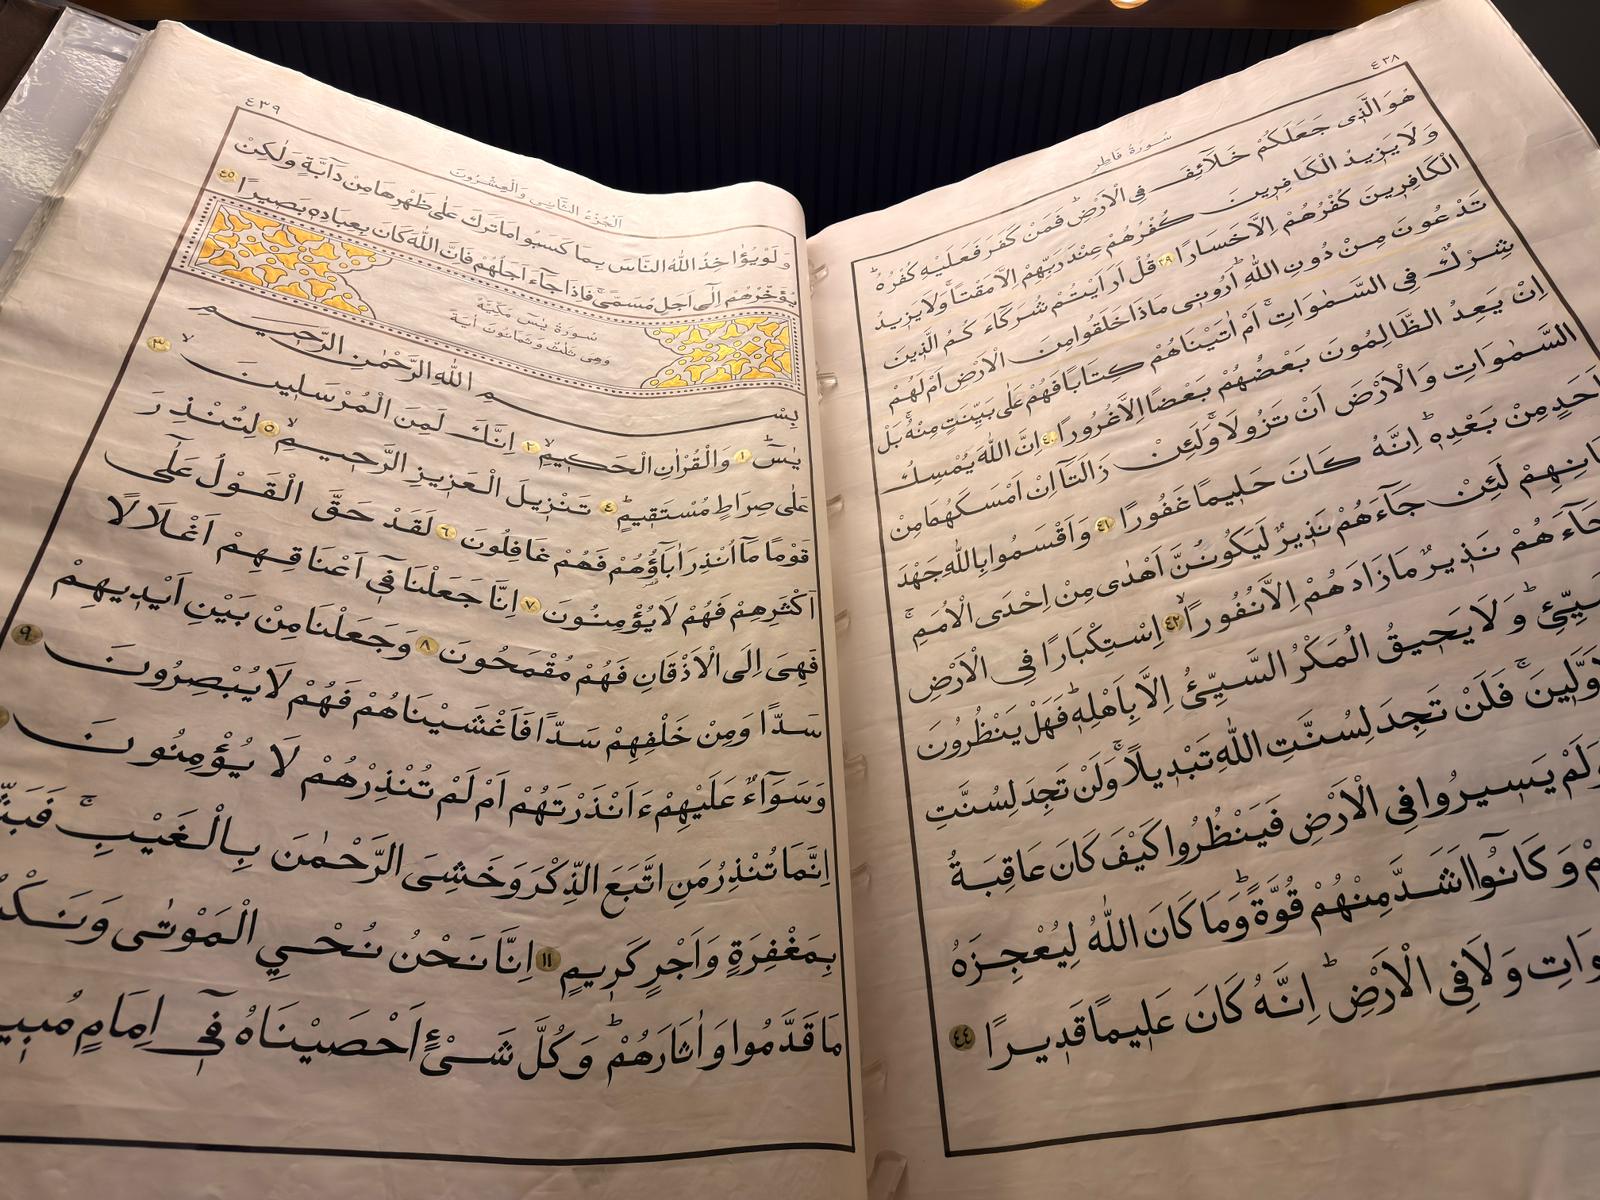 ٤٣٨
سُورَةُ فَاطِرٍ
هُوَ الَّذِى جَعَلَكُمْ خَلَآئِفَ فِى الْاَرْضِۜ فَمَنْ كَفَرَ فَعَلَيْهِ كُفْرُهُۜ
وَلَا يَزِيدُ الْكَافِرِينَ كُفْرُهُمْ عِنْدَ رَبِّهِمْ اِلَّا مَقْتًاۚ وَلَا يَزِيدُ
الْكَافِرِينَ كُفْرُهُمْ اِلَّا خَسَارًا ٣٩ قُلْ اَرَاَيْتُمْ شُرَكَٓاءَ كُمُ الَّذِينَ
تَدْعُونَ مِنْ دُونِ اللّٰهِۜ اَرُونِى مَاذَا خَلَقُوا مِنَ الْاَرْضِ اَمْ لَهُمْ
شِرْكٌ فِى السَّمٰوَاتِۚ اَمْ اٰتَيْنَاهُمْ كِتَابًا فَهُمْ عَلٰى بَيِّنَتٍ مِنْهُۚ بَلْ
اِنْ يَعِدُ الظَّالِمُونَ بَعْضُهُمْ بَعْضًا اِلَّا غُرُورًا ٤٠ اِنَّ اللّٰهَ يُمْسِكُ
السَّمٰوَاتِ وَالْاَرْضَ اَنْ تَزُولَاۚ وَلَئِنْ زَالَتَٓا اِنْ اَمْسَكَهُمَا مِنْ
اَحَدٍ مِنْ بَعْدِهِۜ اِنَّهُ كَانَ حَلِيمًا غَفُورًا ٤١ وَاَقْسَمُوا بِاللّٰهِ جَهْدَ
لَئِنْ جَٓاءَهُمْ نَذِيرٌ لَيَكُونُنَّ اَهْدٰى مِنْ اِحْدَى الْاُمَمِۚ
جَٓاءَهُمْ نَذِيرٌ مَا زَادَهُمْ اِلَّا نُفُورًاۙ ٤٢ اِسْتِكْبَارًا فِى الْاَرْضِ
وَلَا يَحِيقُ الْمَكْرُ السَّيِّئُ اِلَّا بِاَهْلِهِۜ فَهَلْ يَنْظُرُونَ
فَلَنْ تَجِدَ لِسُنَّتِ اللّٰهِ تَبْدِيلًاۚ وَلَنْ تَجِدَ لِسُنَّتِ
يَسِيرُوا فِى الْاَرْضِ فَيَنْظُرُوا كَيْفَ كَانَ عَاقِبَةُ
وَكَانُٓوا اَشَدَّ مِنْهُمْ قُوَّةًۜ وَمَا كَانَ اللّٰهُ لِيُعْجِزَهُ
وَلَا فِى الْاَرْضِۜ اِنَّهُ كَانَ عَلِيمًا قَدِيرًا ٤٤
٤٣٩
اَلْجُزْءُ الثَّانِى وَالْعِشْرُونَ
وَلَوْ يُؤَاخِذُ اللّٰهُ النَّاسَ بِمَا كَسَبُوا مَا تَرَكَ عَلٰى ظَهْرِهَا مِنْ دَٓابَّةٍ وَلٰكِنْ
يُؤَخِّرُهُمْ اِلٰٓى اَجَلٍ مُسَمًّىۚ فَاِذَا جَٓاءَ اَجَلُهُمْ فَاِنَّ اللّٰهَ كَانَ بِعِبَادِهِ بَصِيرًا ٤٥
سُورَةُ يٰسٓ مَكِّيَّةٌ
وَهِىَ ثَلٰثٌ وَثَمَانُونَ اٰيَةً
بِسْمِ اللّٰهِ الرَّحْمٰنِ الرَّحِيمِ
يٰسٓۜ ١ وَالْقُرْاٰنِ الْحَكِيمِۙ ٢ اِنَّكَ لَمِنَ الْمُرْسَلِينَۙ ٣
عَلٰى صِرَاطٍ مُسْتَقِيمٍۜ ٤ تَنْزِيلَ الْعَزِيزِ الرَّحِيمِۙ ٥ لِتُنْذِرَ
قَوْمًا مَٓا اُنْذِرَ اٰبَٓاؤُهُمْ فَهُمْ غَافِلُونَ ٦ لَقَدْ حَقَّ الْقَوْلُ عَلٰٓى
اَكْثَرِهِمْ فَهُمْ لَا يُؤْمِنُونَ ٧ اِنَّا جَعَلْنَا فِٓى اَعْنَاقِهِمْ اَغْلَالًا
فَهِىَ اِلَى الْاَذْقَانِ فَهُمْ مُقْمَحُونَ ٨ وَجَعَلْنَا مِنْ بَيْنِ اَيْدِيهِمْ
سَدًّا وَمِنْ خَلْفِهِمْ سَدًّا فَاَغْشَيْنَاهُمْ فَهُمْ لَا يُبْصِرُونَ ٩
وَسَوَٓاءٌ عَلَيْهِمْ ءَاَنْذَرْتَهُمْ اَمْ لَمْ تُنْذِرْهُمْ لَا يُؤْمِنُونَ
اِنَّمَا تُنْذِرُ مَنِ اتَّبَعَ الذِّكْرَ وَخَشِىَ الرَّحْمٰنَ بِالْغَيْبِۚ
بِمَغْفِرَةٍ وَاَجْرٍ كَرِيمٍ ١١ اِنَّا نَحْنُ نُحْيِي الْمَوْتٰى
مَا قَدَّمُوا وَاٰثَارَهُمْۜ وَكُلَّ شَىْءٍ اَحْصَيْنَاهُ فِٓى اِمَامٍ